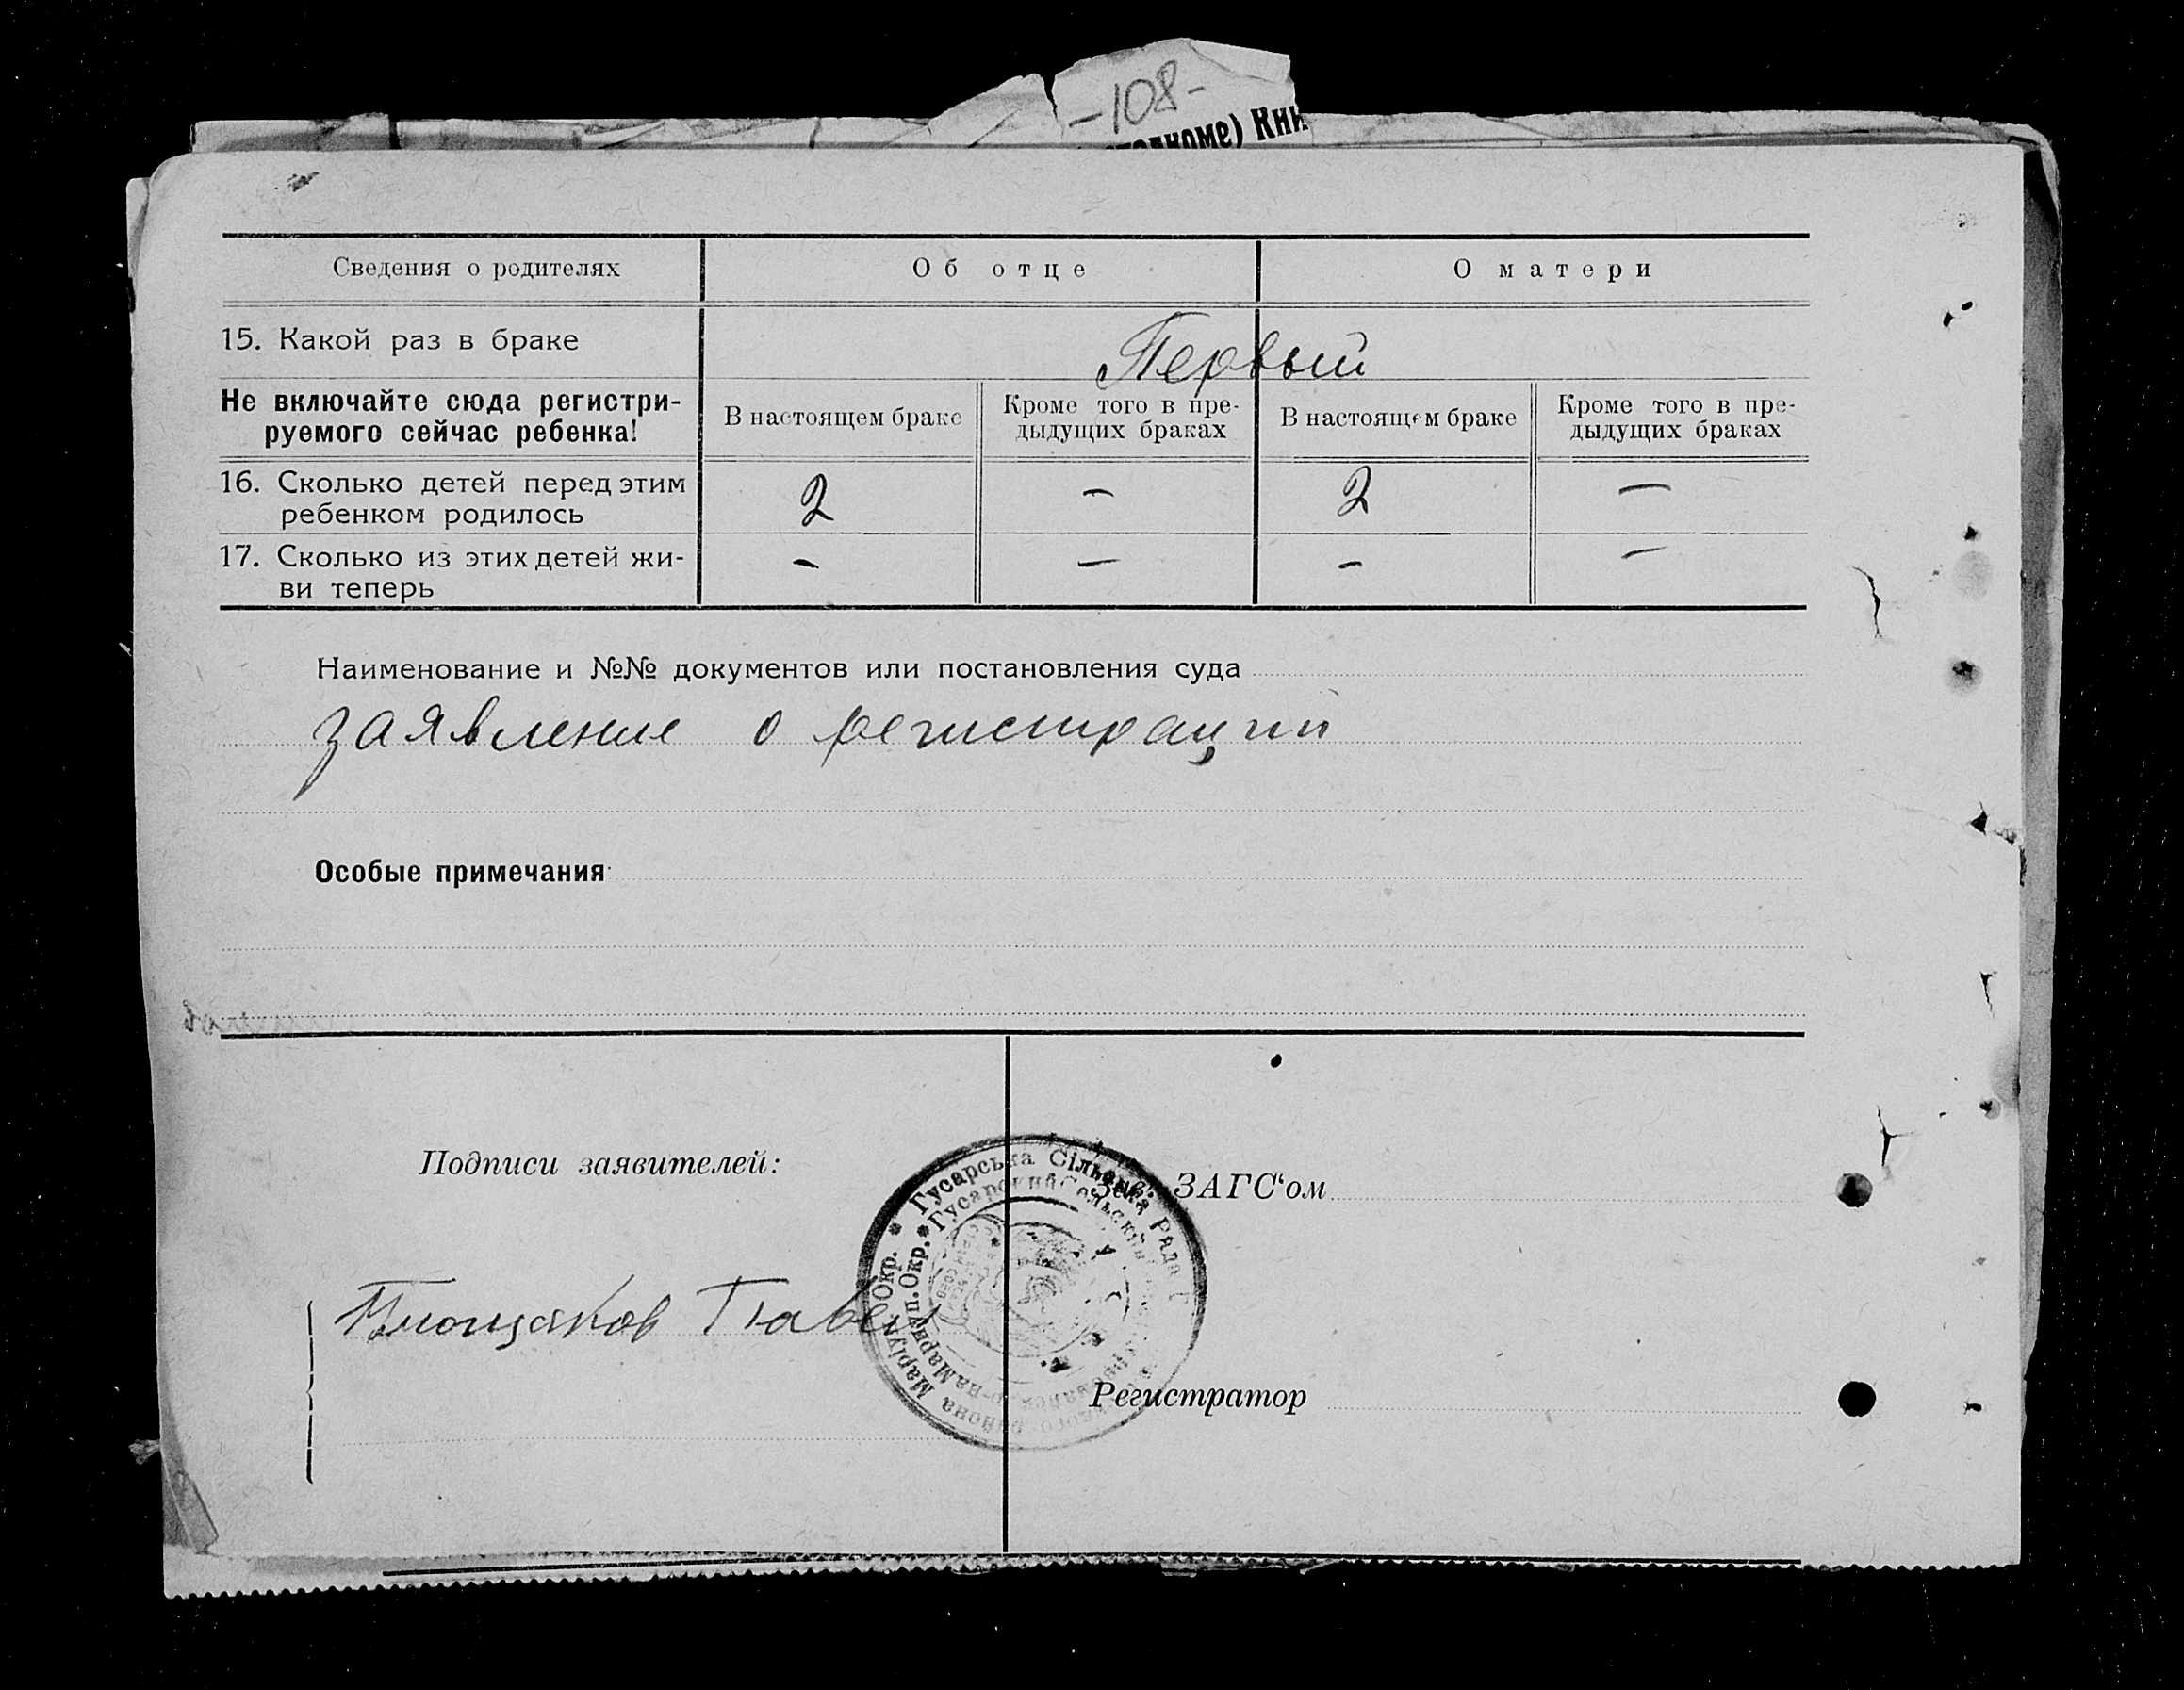 -108-
Кни
Сведения о родителях Об отце О матери
15. Какой раз в браке Первый
Не включайте сюда регистри-
руемого сейчас ребенка!
В настоящем браке
Кроме того в пре-
дыдущих браках
В настоящем браке
Кроме того в пре-
дыдущих браках
16. Сколько детей перед этим
ребенком родилось
2 – 2 –
17. Сколько из этих детей жи-
ви теперь
– – – –
Наименование и №№ документов или постановления суда
заявление о регистрации
Особые примечания
Подписи заявителей:
Зав. ЗАГС‘ом
Гусарська Сільська Рада
Гусарский Сельский
Маріуп. Окр.
Мариуп. Окр.
Павел
Регистратор